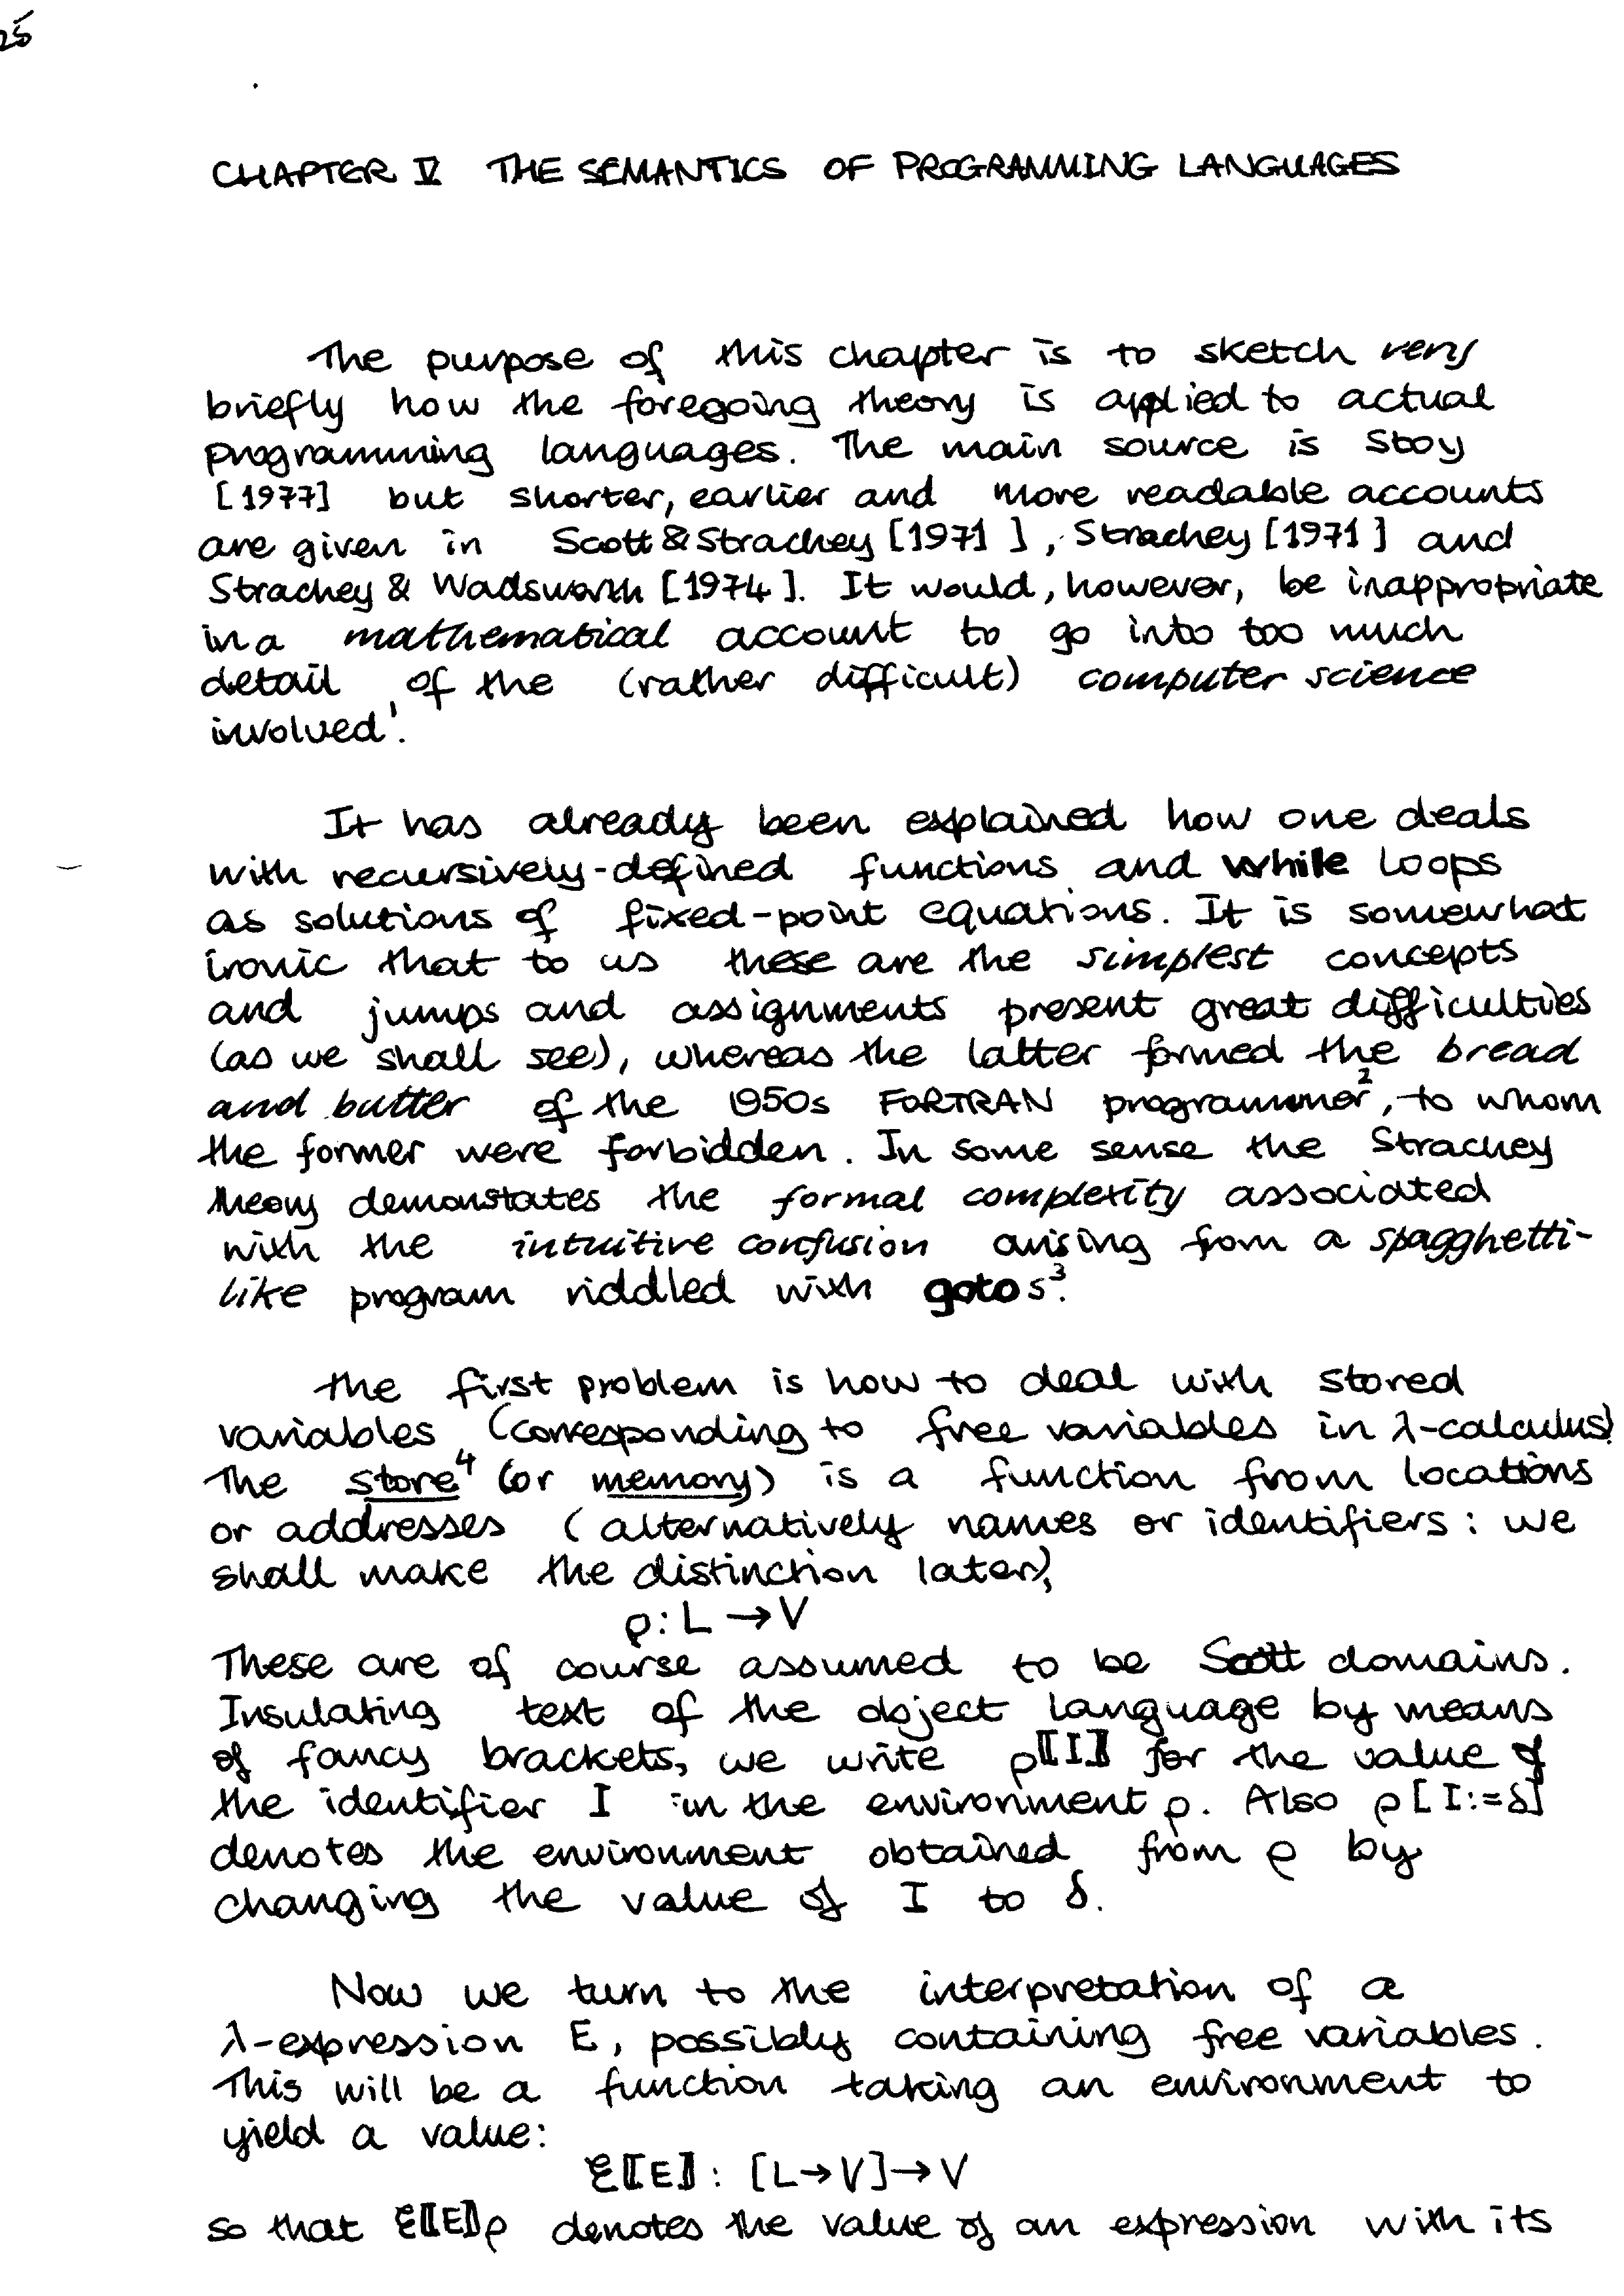 25
CHAPTER V THE SEMANTICS OF PROGRAMMING LANGUAGES
The purpose of this chapter is to sketch very
briefly how the foregoing theory is applied to actual
programming languages. The main source is Stoy
[1977] but shorter, earlier and more readable accounts
are given in Scott & Strachey [1971], Strachey [1971] and
Strachey & Wadsworth [1974]. It would, however, be inappropriate
in a mathematical account to go into too much
detail of the (rather difficult) computer science
involved¹.
It has already been explained how one deals
with recursively-defined functions and while loops
as solutions of fixed-point equations. It is somewhat
ironic that to us these are the simplest concepts
and jumps and assignments present great difficulties
(as we shall see), whereas the latter formed the bread
and butter of the 1950s FORTRAN programmer², to whom
the former were forbidden. In some sense the Strachey
theory demonstates the formal complexity associated
with the intuitive confusion arising from a spagghetti-
like program riddled with gotos³.
The first problem is how to deal with stored
variables (corresponding to free variables in λ-calculus).
The store⁴ (or memory) is a function from locations
or addresses (alternatively names or identifiers: we
shall make the distinction later),
ρ: L → V
These are of course assumed to be Scott domains.
Insulating text of the object language by means
of fancy brackets, we write ρ⟦I⟧ for the value of
the identifier I in the environment ρ. Also ρ[I:=δ]
denotes the environment obtained from ρ by
changing the value of I to δ.
Now we turn to the interpretation of a
λ-expression E, possibly containing free variables.
This will be a function taking an environment to
yield a value:
ℰ⟦E⟧: [L→V]→V
so that ℰ⟦E⟧ρ denotes the value of an expression with its